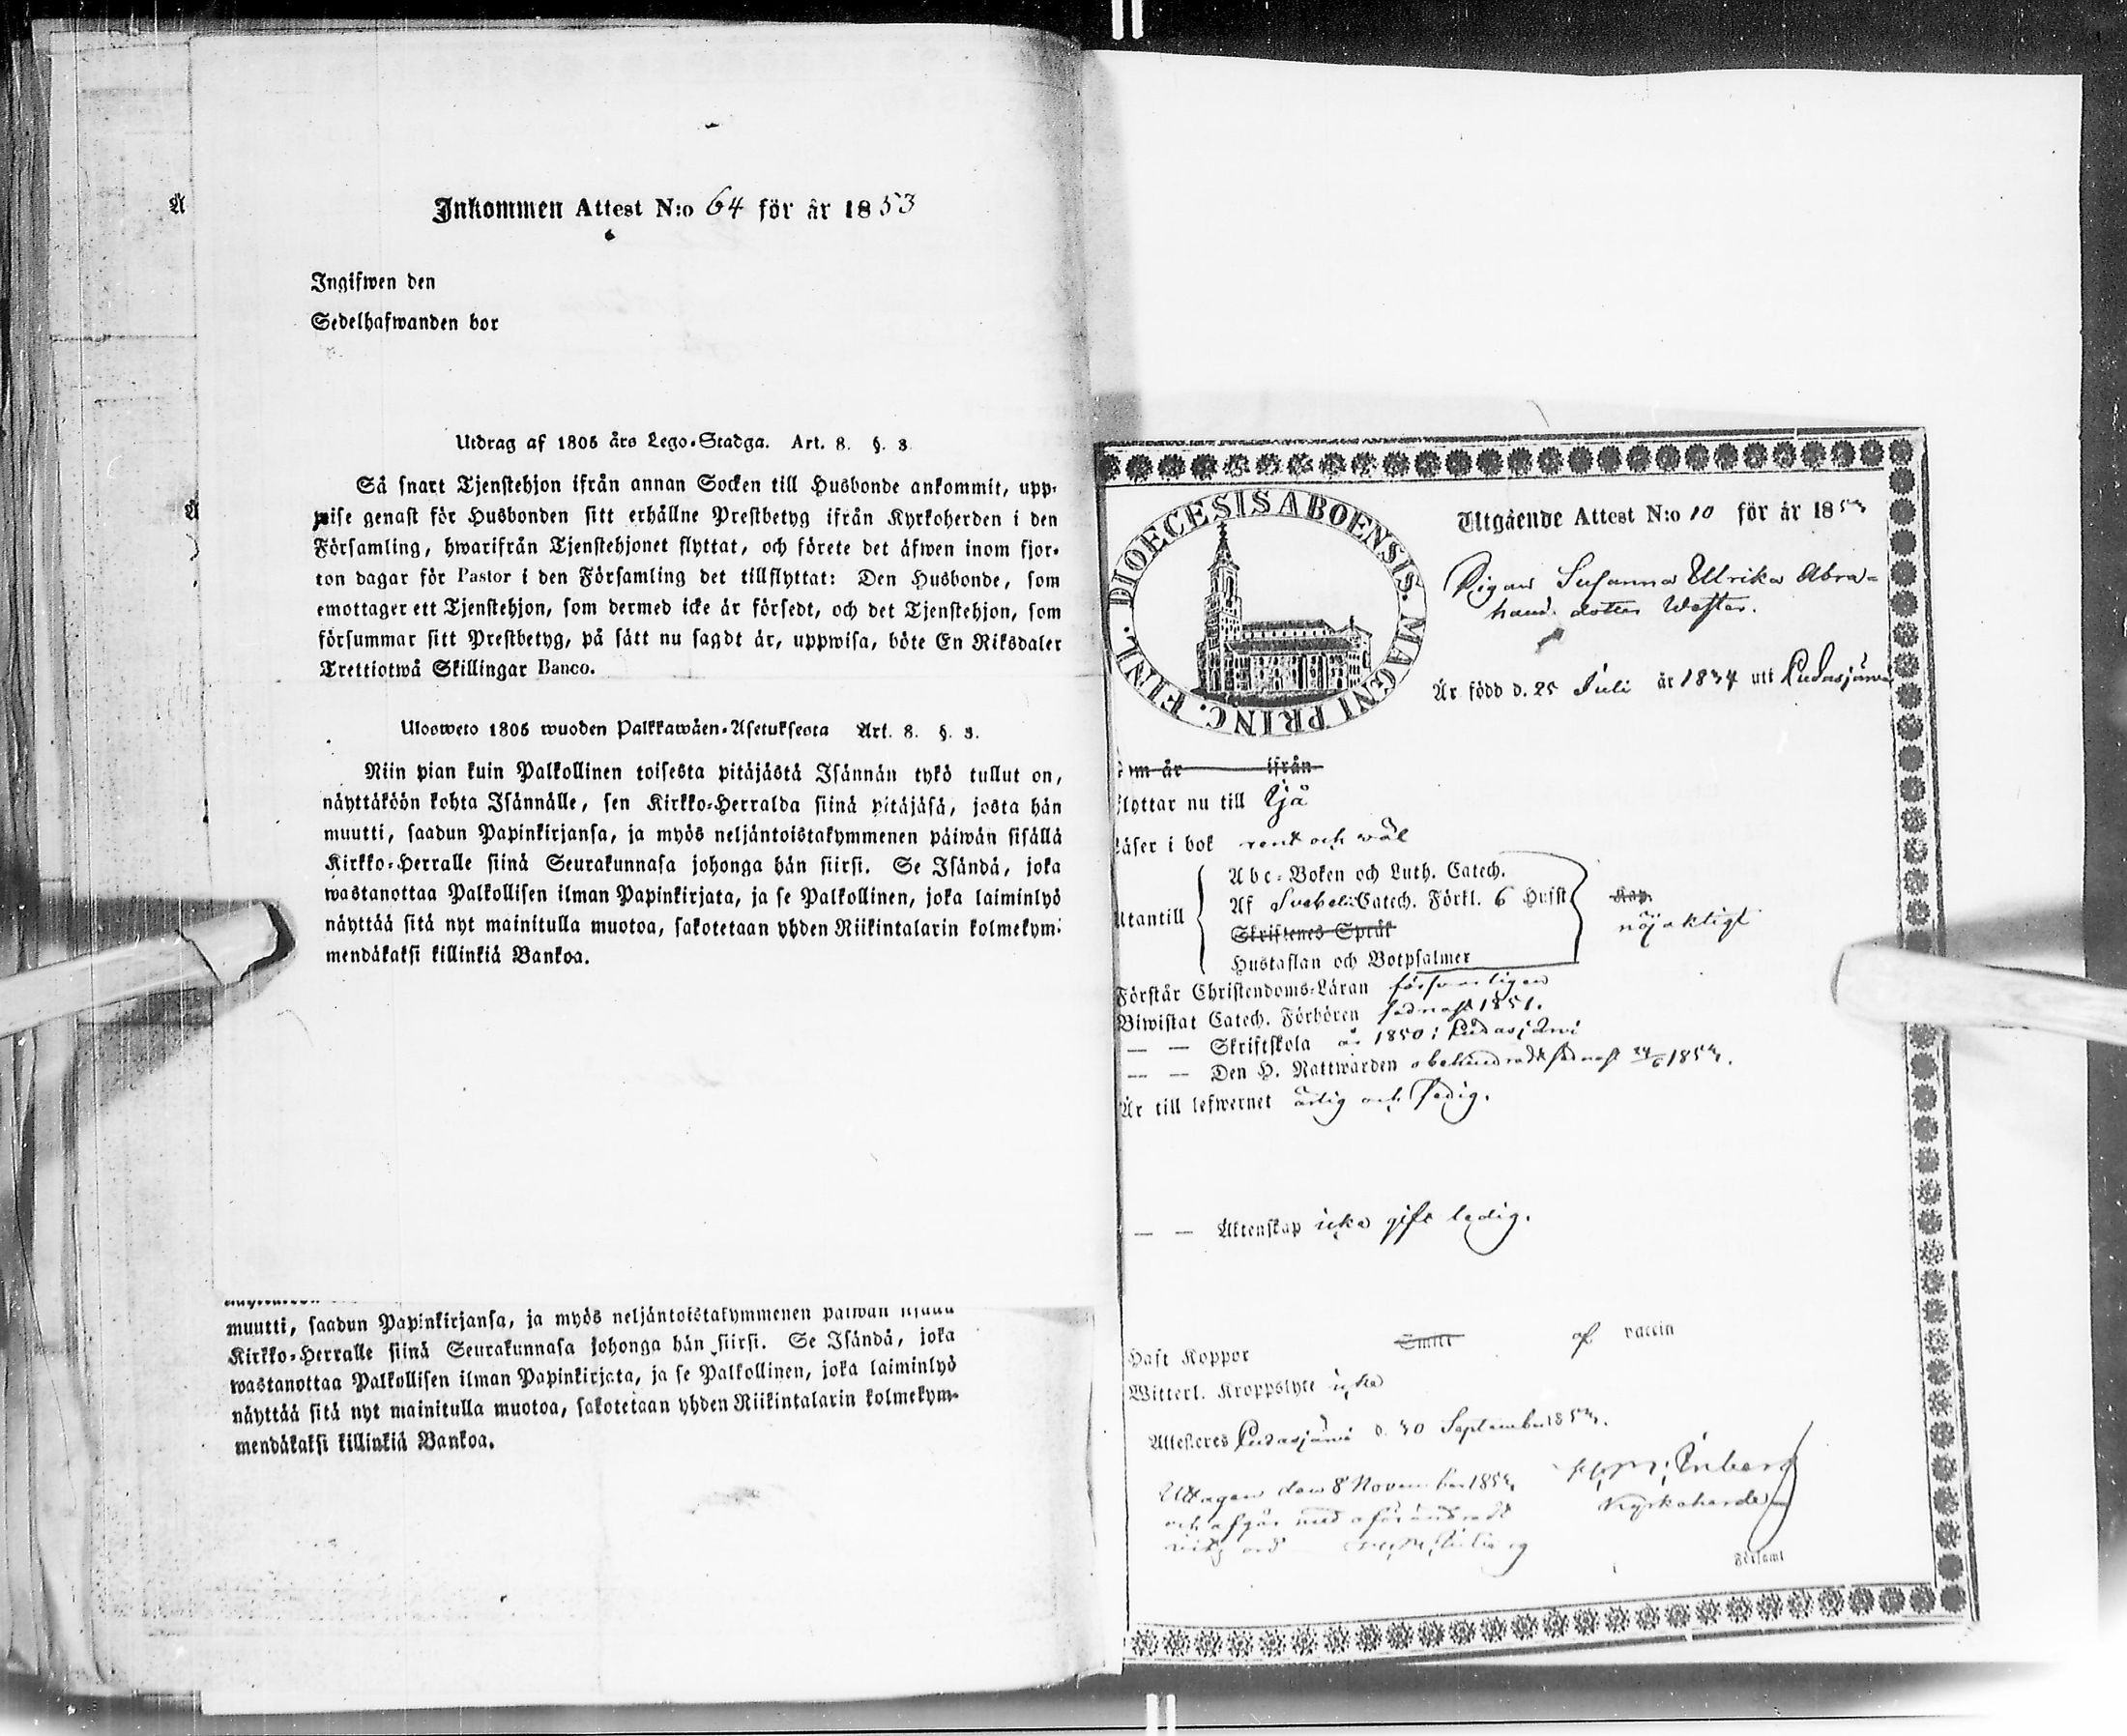 Inkommen Attest N:o 64 för år 1853
Ingifwen den
Sedelhafwanden bor
Utdrag af 1805 års Lego-Stadga. Art. 8. §. 3.
Så snart Tjenstehjon ifrån annan Socken till Husbonde ankommit, upp-
wise genast för Husbonden sitt erhållne Prestbetyg ifrån Kyrkoherden i den
Församling, hwarifrån Tjenstehjonet flyttat, och förete det äfwen inom fjor-
ton dagar för Pastor i den Församling det tillflyttat: Den Husbonde, som
emottager ett Tjenstehjon, som dermed icke är försedt, och det Tjenstehjon, som
försummar sitt Prestbetyg, på sätt nu sagdt är, uppwisa, böte En Riksdaler
Trettiotwå Skillingar Banco.
Ulosweto 1805 wuoden Palkkawäen-Asetuksesta Art. 8. §. 3.
Niin pian kuin Palkollinen toisesta pitäjästä Isännän tykö tullut on,
näyttäköön kohta Isännälle, sen Kirkko-Herralda siinä pitäjäsä, josta hän
muutti, saadun Papinkirjansa, ja myös neljäntoistakymmenen päiwän sisällä
Kirkko-Herralle siinä Seurakunnasa johonga hän siirsi. Se Isändä, joka
wastanottaa Palkollisen ilman Papinkirjata, ja se Palkollinen, joka laiminlyö
näyttää sitä nyt mainitulla muotoa, sakotetaan yhden Riikintalarin kolmekym-
mendäkaksi killinkiä Bankoa.
muutti, saadun Papinkirjansa, ja myös neljäntoistakymmenen päiwän sisällä
Kirkko-Herralle siinä Seurakunnasa johonga hän siirsi. Se Isändä, joka
wastanottaa Palkollisen ilman Papinkirjata, ja se Palkollinen, joka laiminlyö
näyttää sitä nyt mainitulla muotoa, sakotetaan yhden Riikintalarin kolmekym-
mendäkaksi killinkiä Bankoa.
DIOECESIS ABOENSIS. MAGNI PRINC. FINL.
Utgående Attest N:o 10 för år 1853
Pigan Susanna Ulrika Abra-
hams dotter Wester.
Är född d. 25 Juli år 1834 uti Pudasjärwi
om år ifrån
flyttar nu till Ijå
läser i bok rent och wäl
Abc-Boken och Luth. Catech.
Utantill Af Svebelii Catech. Förkl. 6 Hufst
Skriftenes Språk
nöjaktigt
Hustaflan och Botpsalmer
Förstår Christendoms-Läran försvarligen
Biwistat Catech. Förhören sednast 1851.
— — Skriftskola år 1850 i Pudasjärwi
— — Den H. Nattwarden obehindradt sednast 24/6 1853.
Är till lefwernet ärlig och sedig.
— — Äktenskap icke gift ledig.
Haft Koppor Smitt af vaccin
Witterl. Kroppslyte icke
Attesteres Pudasjärwi d. 30 September 1853.
Uttagen den 8 November 1853
Kyrkoherde
och afgår med oförändradt
Församl